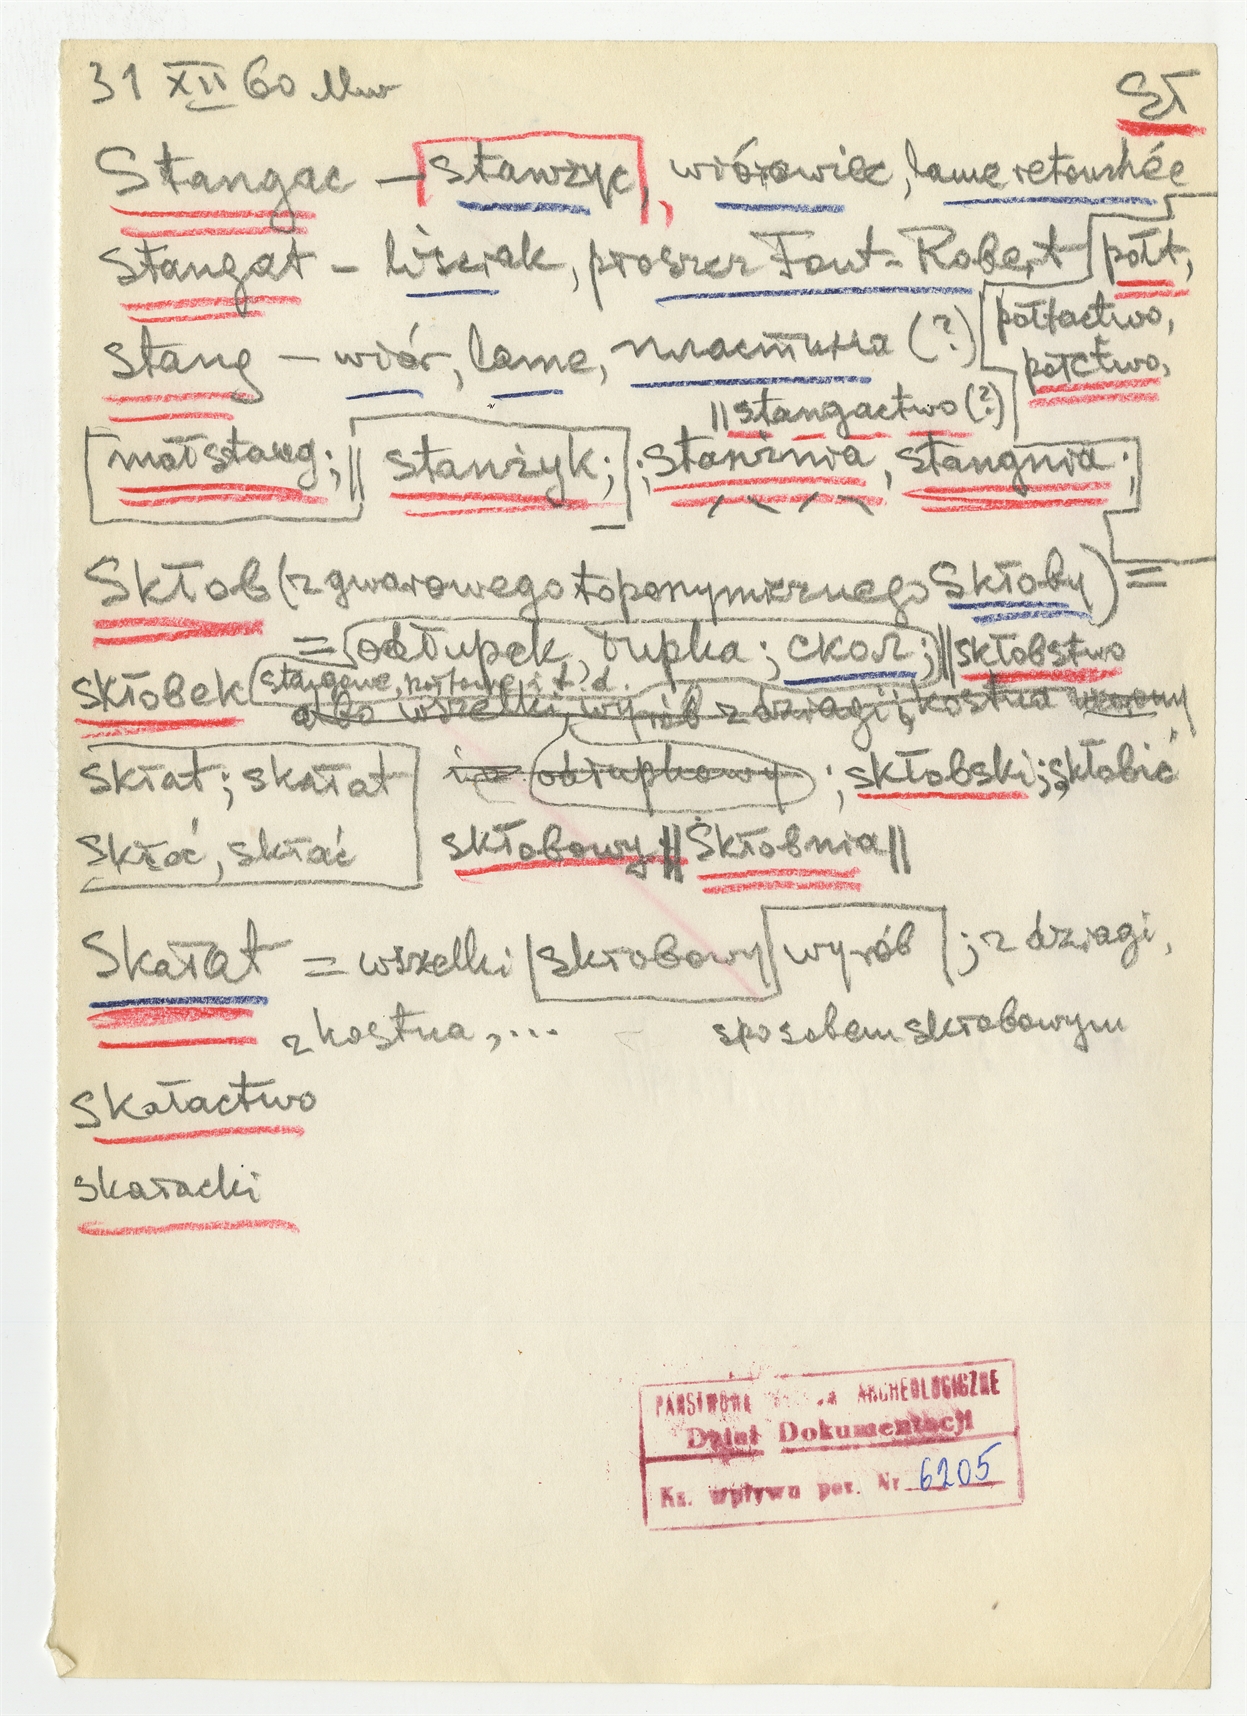 31 XII 60 Mw
SŁ
Stangac – stanżyc, wiórowiec, lame retouchée
stangat – liściak, proszcz Font-Robert półt,
stang – wiór, lame, пластина (?) półtactwo,
półctwo,
|| stangactwo (?)
małstang; || stanżyk; ; stanżnia, stangnia;
Skłob (z gwarowego toponymicznego Skłoby) =
= odłupek, łupka; скол; || skłobstwo
skłobek stangowe, półtowe i t. d.
albo wszelki wyrób z dziagi, kostna
skłat; skałat odłupkowy ; skłobski; skłobić
skłać, skłać skłobowy || Skłobnia ||
Skałat = wszelki skłobowy wyrób ; z dziagi,
z kostna, ... sposobem skłobowym
skałactwo
skałacki
PAŃSTWOWE ARCHEOLOGICZNE
Dział Dokumentacji
Ks. wpływu poz. Nr 6205